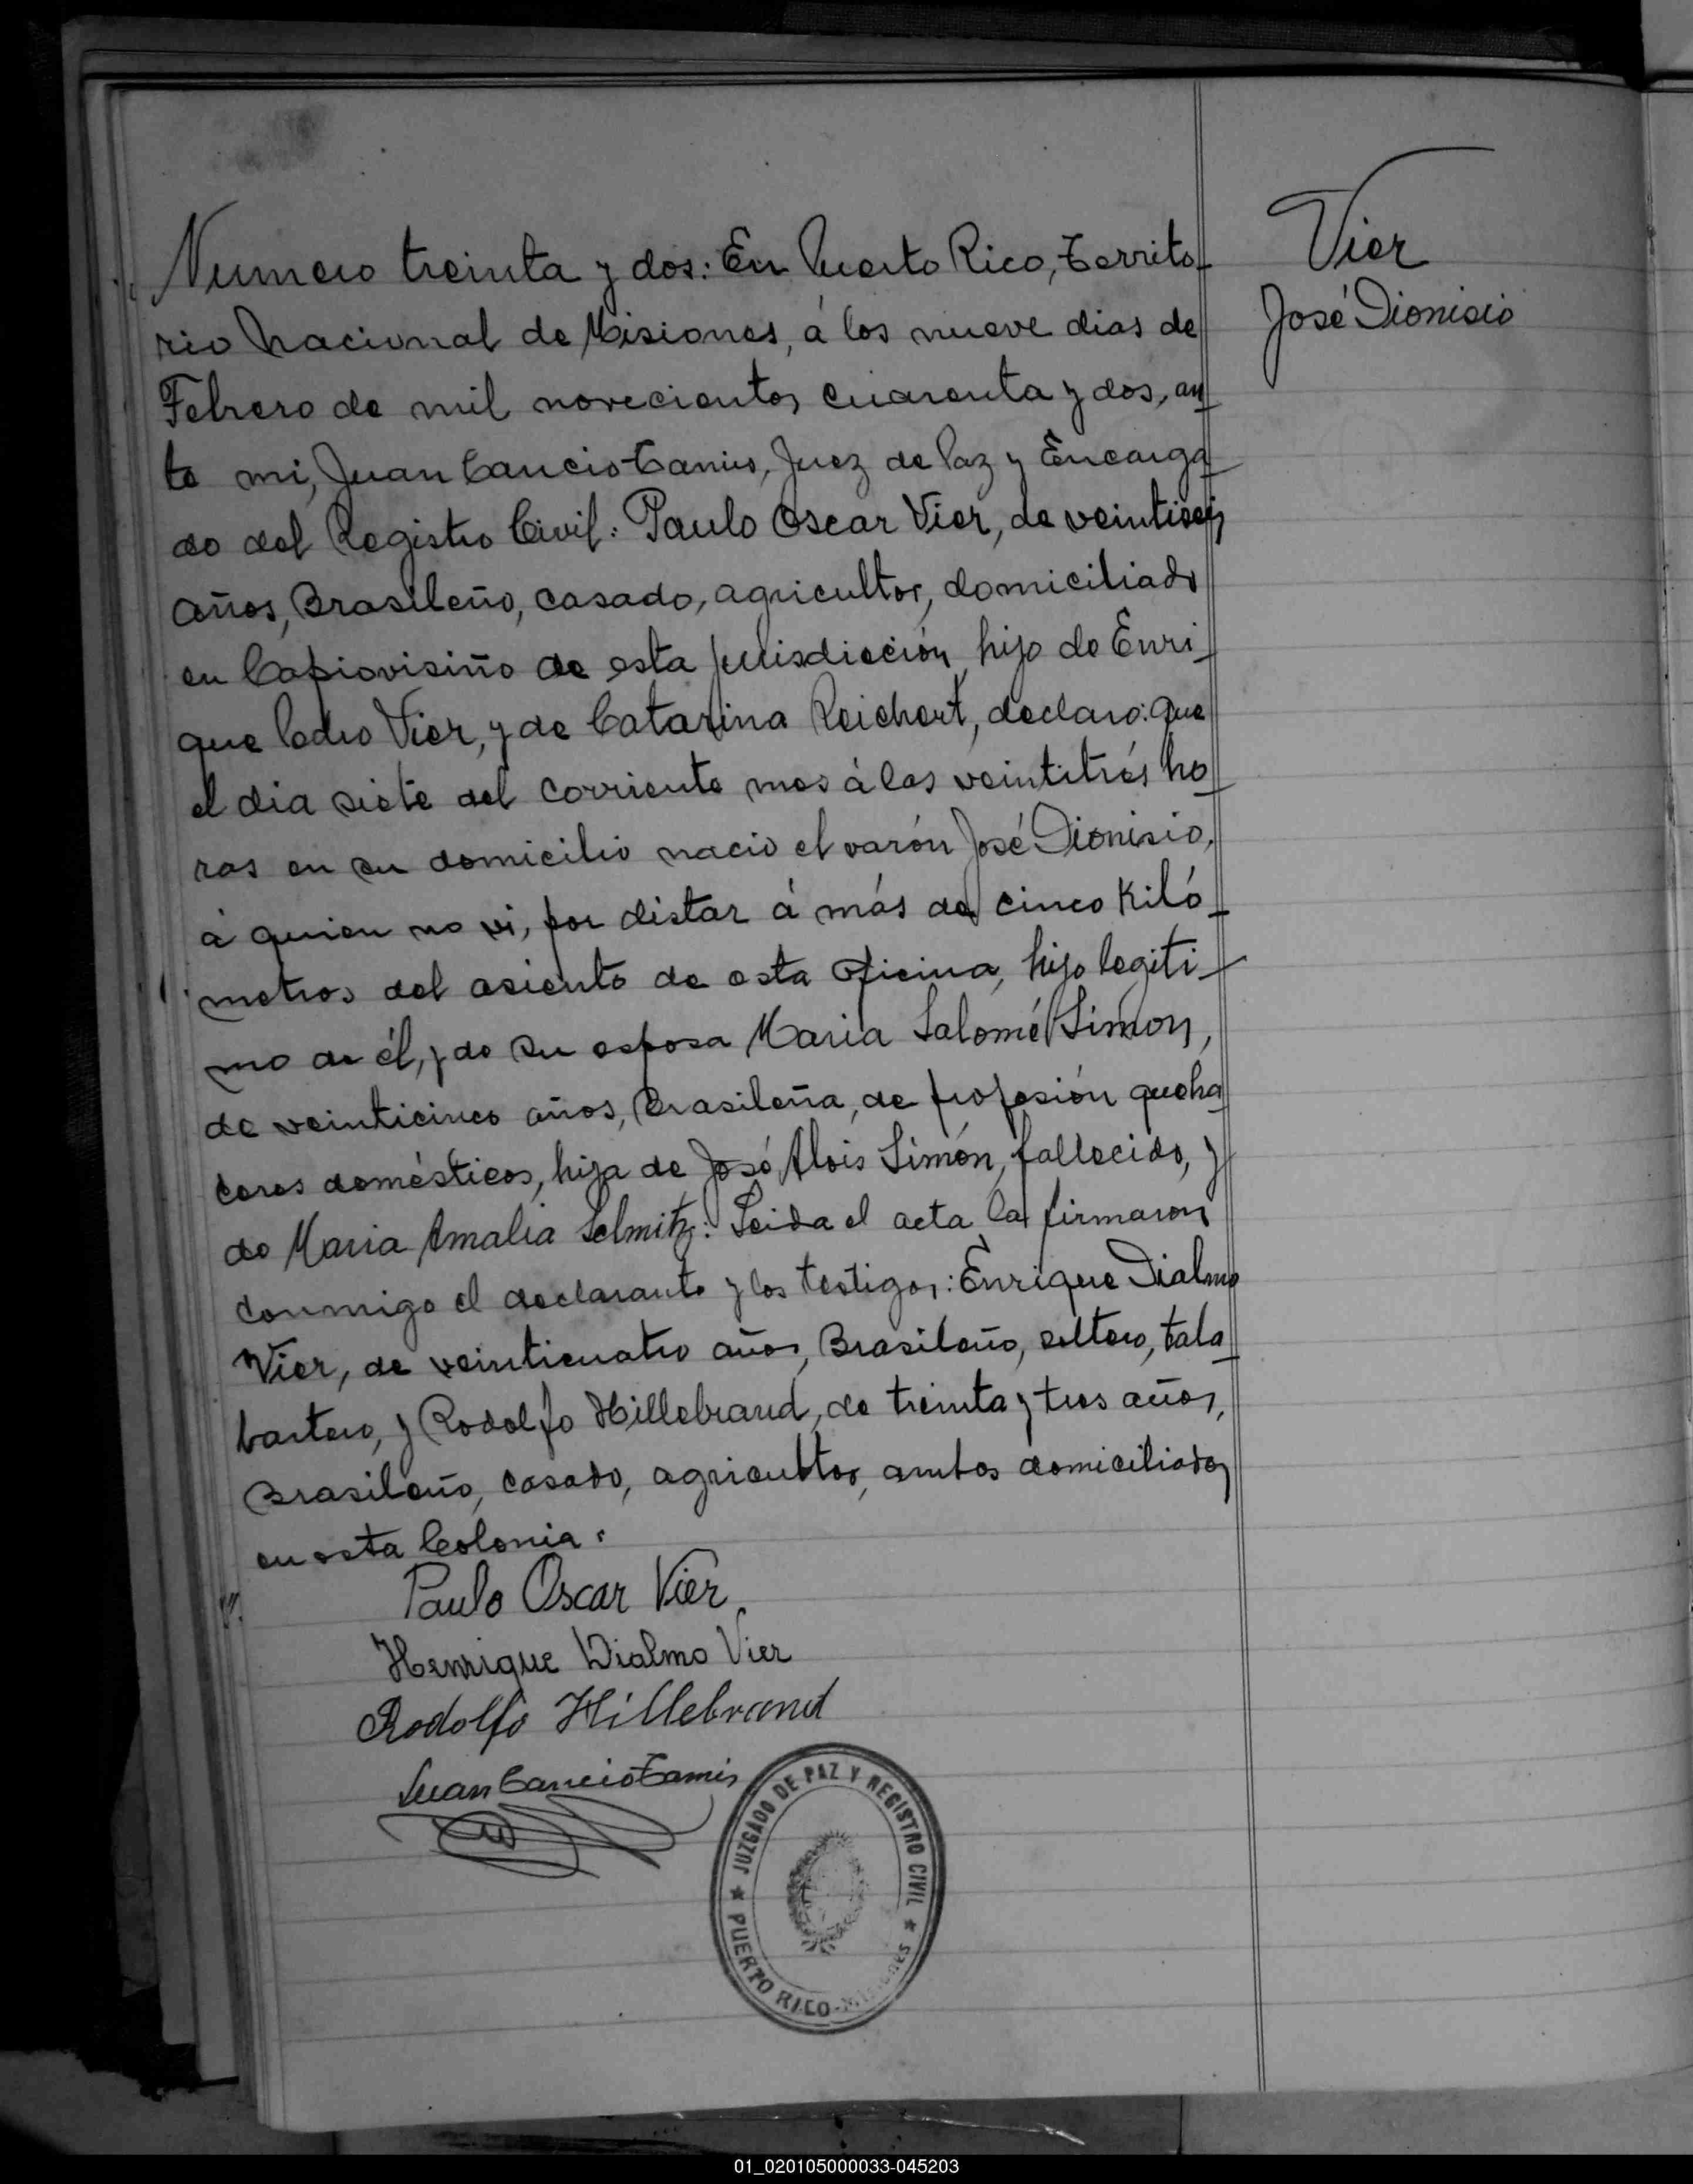 Vier
José Dionisio
Numero treinta y dos: En Puerto Rico, Territo-
rio Nacional de Misiones, á los nueve dias de
Febrero de mil novecientos cuarenta y dos, an-
te mi, Juan Cancio Tamis, Juez de Paz y Encarga-
do del Registro Civil: Paulo Oscar Vier, de veintiseis
años, Brasileño, casado, agricultor, domiciliado
en Capiovisiño de esta jurisdicción, hijo de Enri-
que Pedro Vier, y de Catarina Reichert, declaro: que
el dia siete del corriente mes á las veintitrés ho-
ras en su domicilio nacio el varón José Dionisio,
á quien no vi, por distar á más de cinco kiló-
metros del asiento de esta oficina, hijo legiti-
mo de él, y de su esposa Maria Salomé Simon,
de veinticinco años, Brasileña, de profesión queha-
ceres domésticos, hija de José Alois Simón, fallecido, y
de Maria Amalia Selmitz: Leida el acta la firmaron
conmigo el declarante y los testigos: Enrique Dialmo
Vier, de veinticuatro años, Brasileño, soltero, tala-
bartero, y Rodolfo Hillebrand, de treinta y tres años,
Brasileño, casado, agricultor, ambos domiciliados
en esta Colonia.
Paulo Oscar Vier
Henrique Dialmo Vier
Rodolfo Hillebrand
Juan Cancio Tamis
JUZGADO DE PAZ Y REGISTRO CIVIL
PUERTO RICO - MISIONES
01_020105000033-045203